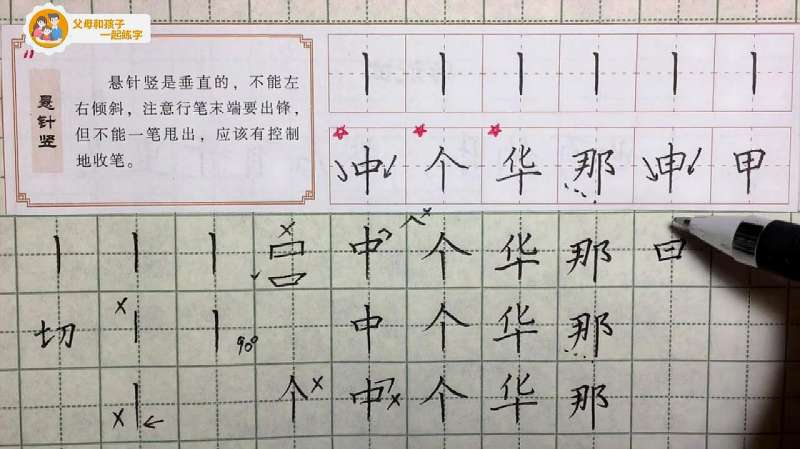 父母和孩子
一起练字
悬针竖
悬针竖是垂直的，不能左
右倾斜，注意行笔末端要出锋，
但不能一笔甩出，应该有控制
地收笔。
中 个 华 那 申 甲
中 个 华 那 曰
切 90° 中 个 华 那
个 中 个 华 那